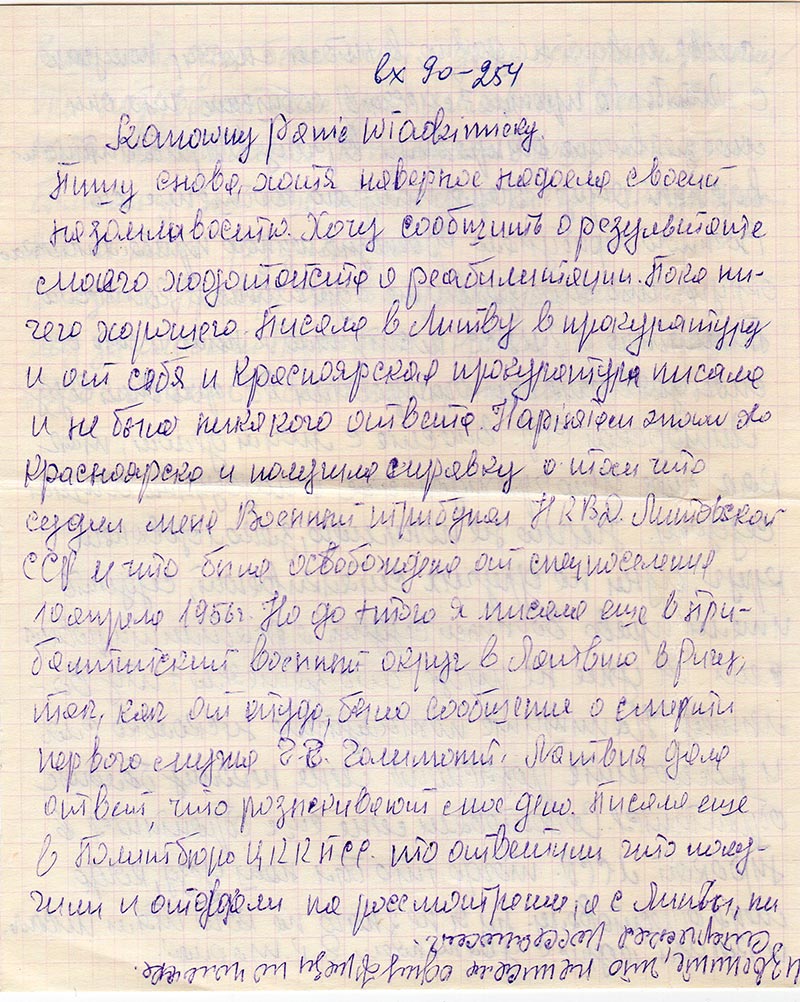 вх 90-254
Szanowny Panie Wladzimiczy.
Пишу снова, хотя наверное надоела своей
Хочу сообщить о результате
моего ходотойста о реабилитации. Пока ни-
чего хорошего. Писала в Литву в прокуратуру
и от себя и Красноярская прокуратура писала
и не было никакого ответа.
Красноярска и получила справку о том что
судил меня Военный трибунал НКВД. Литовской
ССР и что была освобождена от спецпоселения
10 апреля 1956 г. Но до этого я писала еще в При-
балтийский военный округ в Латвию в Ригу,
так, как от туда, было сообщение о смерти
первого мужа Латвия дала
ответ, что розыскивают мое дело. Писала еще
в Политбюро ЦККПСС. что ответили что полу-
чили и отдали на рассмотрение, а с Литвы, ни
Извините, что